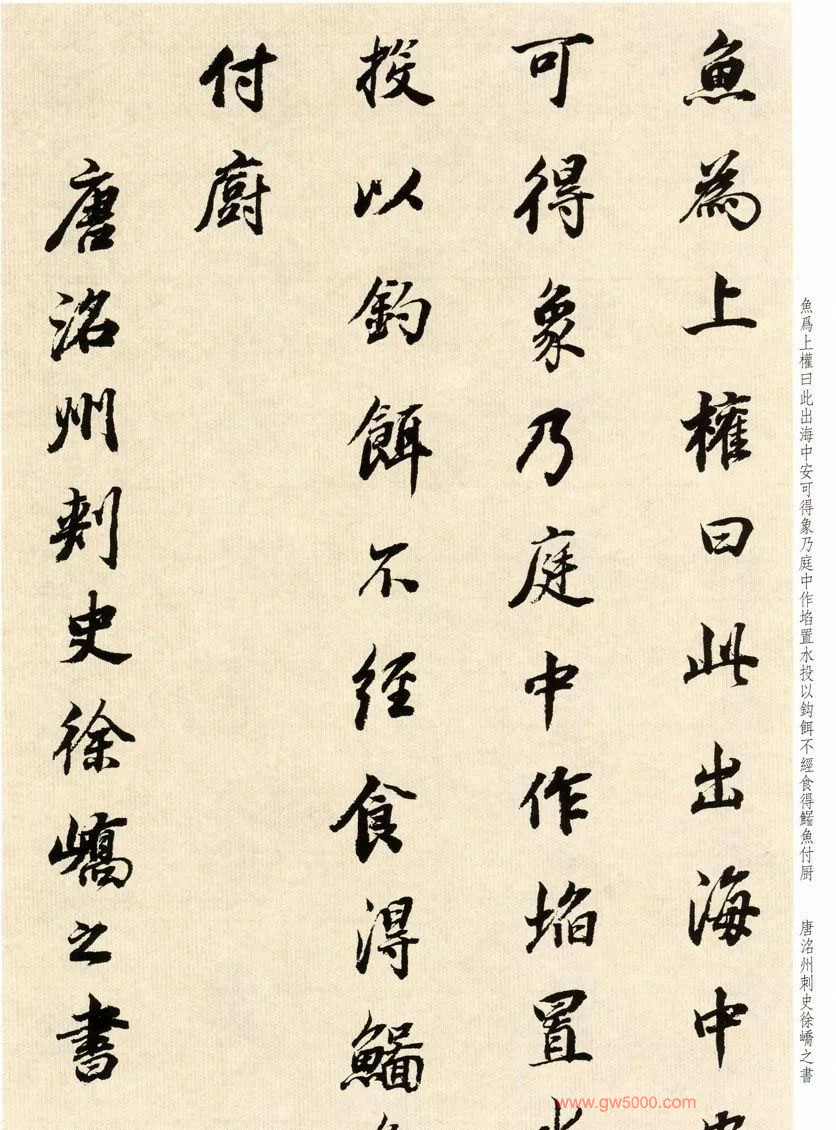 魚爲上權曰此出海中安可得象乃庭中作埳置水投以鈎餌不經食得鯔魚付厨
唐洺州刺史徐嶠之書
魚為上權曰此出海中
可得象乃庭中作埳置水
投以鈎餌不經食得鯔
付廚
唐洺州刺史徐嶠之書
www.gw5000.com